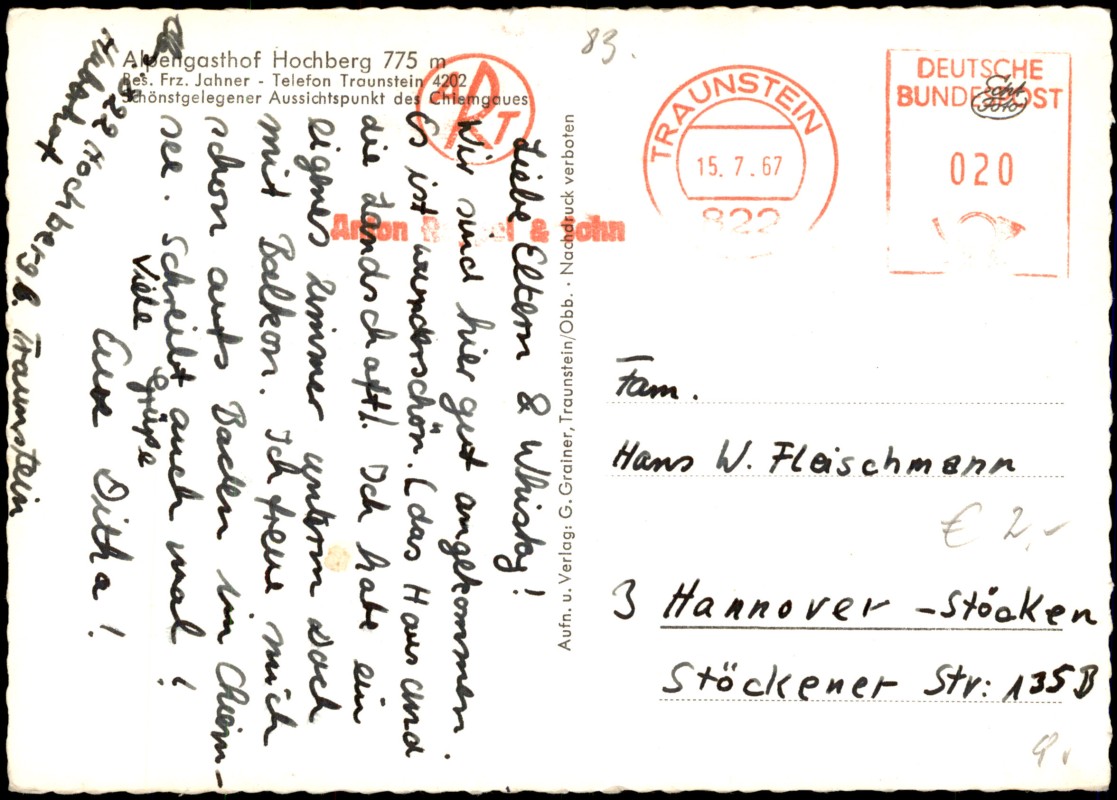 Alpengasthof Hochberg 775 m
Bes. Frz. Jahner - Telefon Traunstein 4202
Schönstgelegener Aussichtspunkt des Chiemgaues
83.
ART
Anton & Sohn
TRAUNSTEIN
15.7.67
822
DEUTSCHE
BUNDESPOST
020
Echt
Foto
Liebe Eltern & Whisky!
Wir sind hier gut angekommen.
Es ist wunderschön. (das Haus und
die Landschaft). Ich habe ein
eigenes Zimmer unterm Dach
mit Balkon. Ich freue mich
schon aufs Baden im Chiem-
see. Schreibt auch mal!
Viele Grüße
Eure Ditha!
822 Hochberg b. Traunstein
Aufn. u. Verlag: G. Grainer, Traunstein/Obb. · Nachdruck verboten
Fam.
Hans W. Fleischmann
€ 2,-
3 Hannover - Stöcken
Stöckener Str: 135B
9.